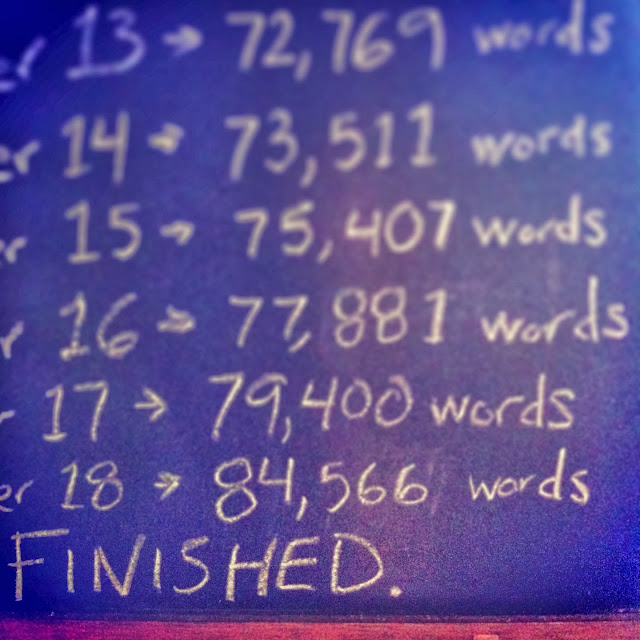 er 13 → 72,769 words
er 14 → 73,511 words
er 15 → 75,407 words
r 16 → 77,881 words
r 17 → 79,400 words
er 18 → 84,566 words
FINISHED.